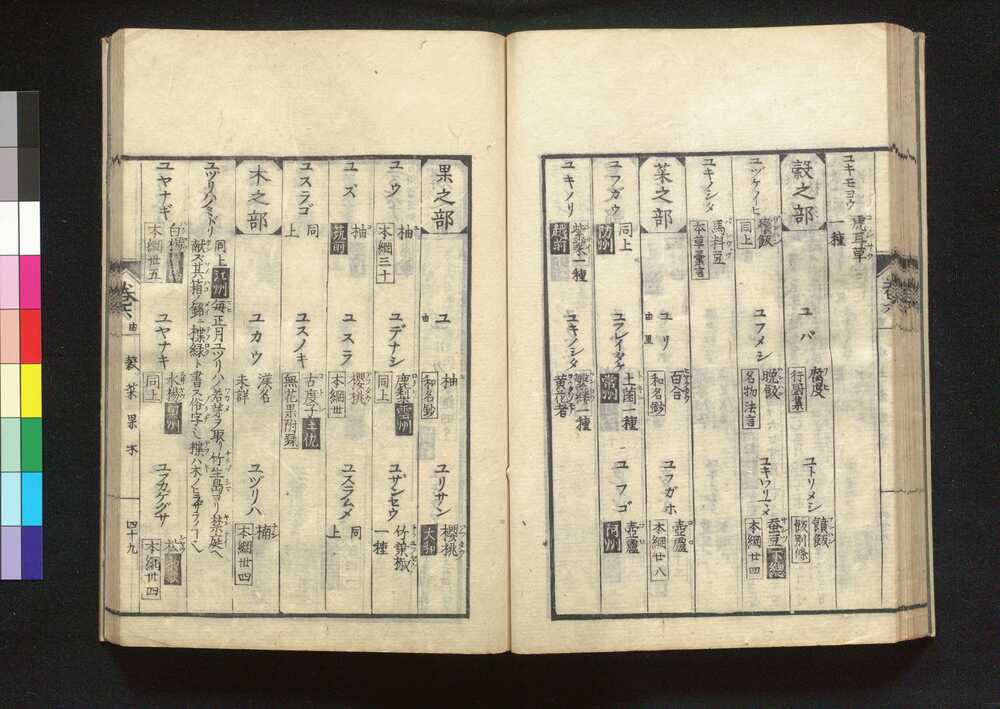 ユキモヨウ 虎耳草 一種
穀之部 ユバ 腐皮 行厨集 ユトリメシ 饙飯 飯別條
ユヅケイヒ 飯 同上 ユフメシ 晩飯 名物法言 ユキワリマメ 蚕豆 下總
ユキノシタ 馬料豆 本草彙言
菜之部 ユリ 由里 百合 和名鈔 ユフガホ 壺盧 本綱廿八
ユフガウ 同上 防州 ユフレイタケ 土菌一種 常州 ユフゴ 壺盧
ユキノリ 紫菜一種 越前 ユキノシタ 一種 黄
巻六
果之部 ユ 由 柚 和名鈔 ユリサン 櫻桃 大和
ユウ 柚 本綱三十 ユデナシ 鹿梨 雲州 同上 ユザンセウ 竹葉椒 一種
ユズ 柚 筑前 ユスラ 櫻桃 本綱卅 ユスラムメ 同上
ユスラゴ 同上 ユスノキ 古度子 無花果附録
木之部 ユカウ 漢名未詳 ユヅリハ 楠 本綱卅四
ユヅリハミドリ 同上 江州 毎正月ユヅリハノ若芽ヲ取リ竹生島ヨリ禁廷ヘ
献ズ其箱ノ銘ニ楪緑ト書ス俗字ニ楪ハ木ノ
ユヤナギ 白楊 本綱卅五 ユヤナキ 水楊 同上 ユフカゲグサ 松 本綱卅四
巻六 由 穀 菜 果 木 四十九